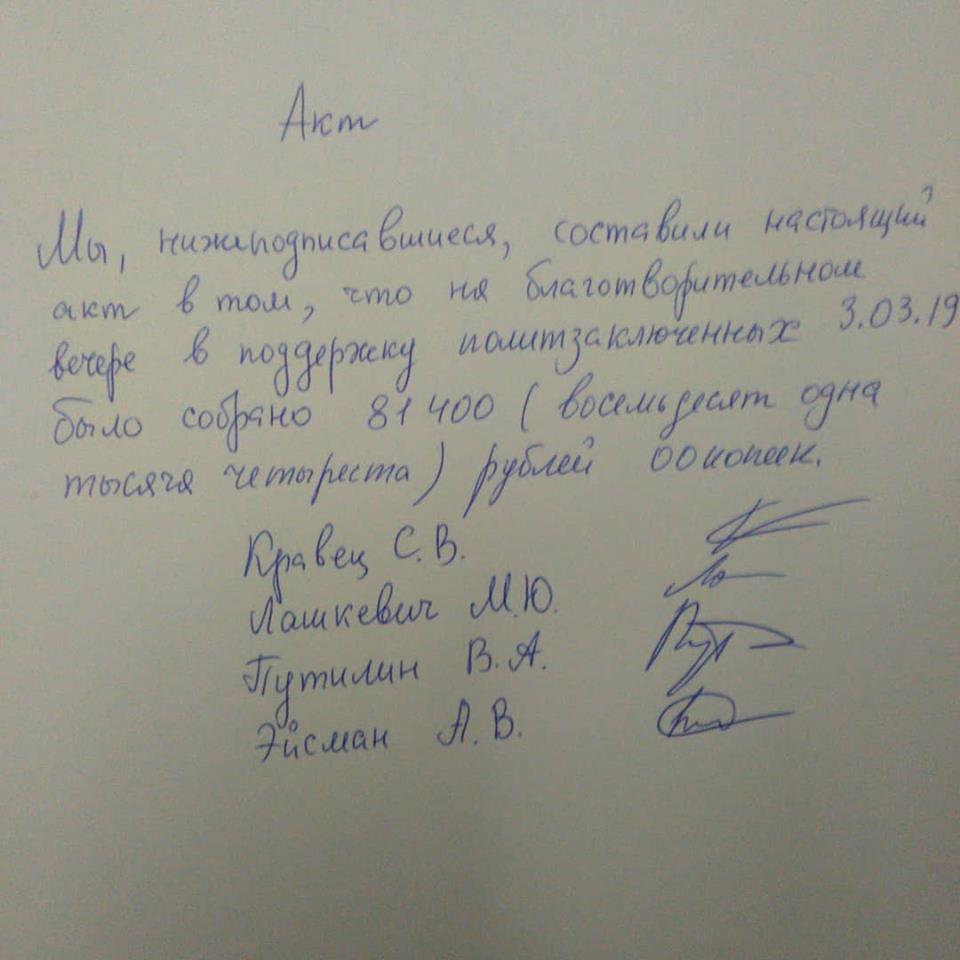 Акт
Мы, нижеподписавшиеся, составили настоящий
акт в том, что на благотворительном
вечере в поддержку политзаключенных 3.03.19
было собрано 81400 (восемьдесят одна
тысяча четыреста) рублей 00 копеек.
Кравец С.В.
Лашкевич М.Ю.
Путилин В.А.
Эйсман А.В.